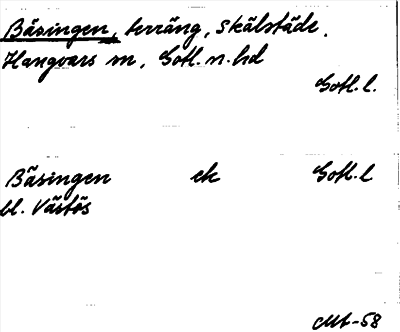 Bäsingen, terräng, skälstäde.
Hangvars sn, Gotl. n. hd
Gotl. l.
Bäsingen ek Gotl. l
bl. Västös
-58